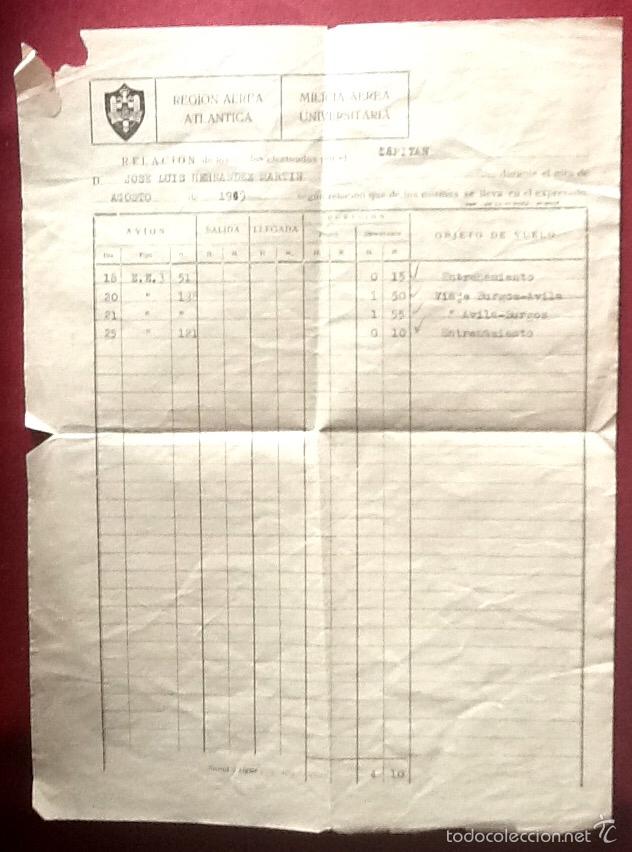 REGION AEREA
ATLANTICA
MILICIA AEREA
UNIVERSITARIA
RELACION de los efectuados por el CAPITAN
D. JOSE LUIS HERNANDEZ MARTIN durante el mes de
AGOSTO de 1969 según relación que de los mismos se lleva en el expresado
AVION SALIDA LLEGADA POSICION OBJETO DE VUELO
Día Tipo H. M. H. M. H. M. H. M.
18 E.E.3 51 0 15 Entrenamiento
20 " 135 1 50 Viaje Burgos-Avila
21 " " 1 55 " Avila-Burgos
25 " 121 0 10 Entrenamiento
Suma y sigue 4 10
todocoleccion.net